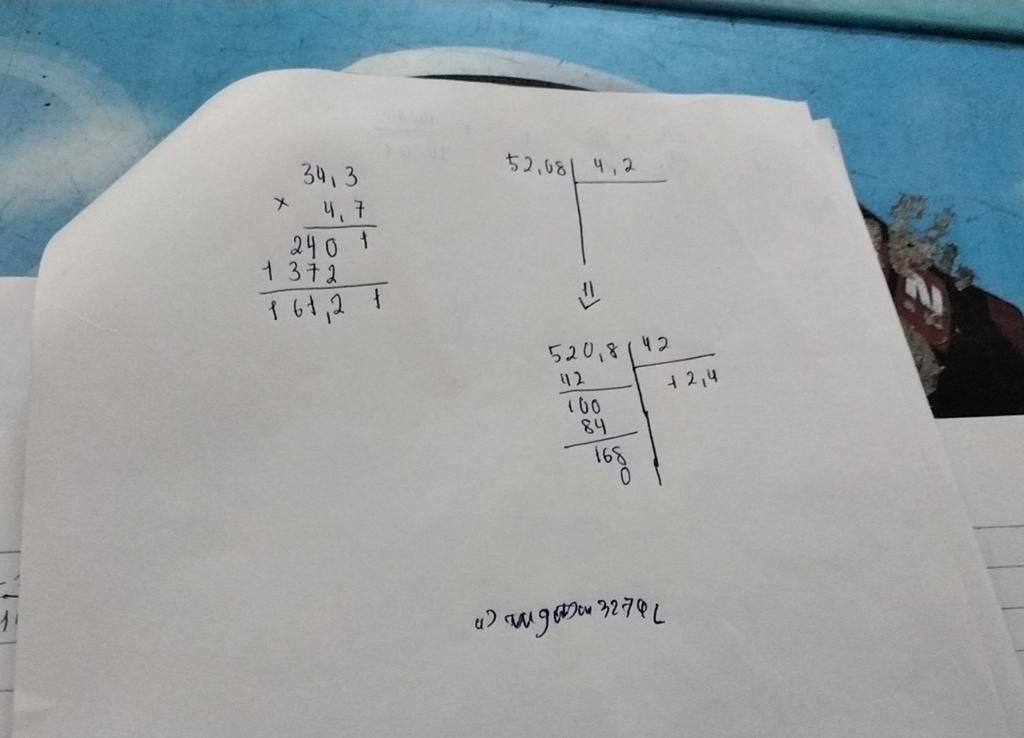 34,3
× 4,7
240 1
1 372
1 61,2 1
52,08 4,2
⇓
520,8 42
42 12,4
100
84
168
0
3274L